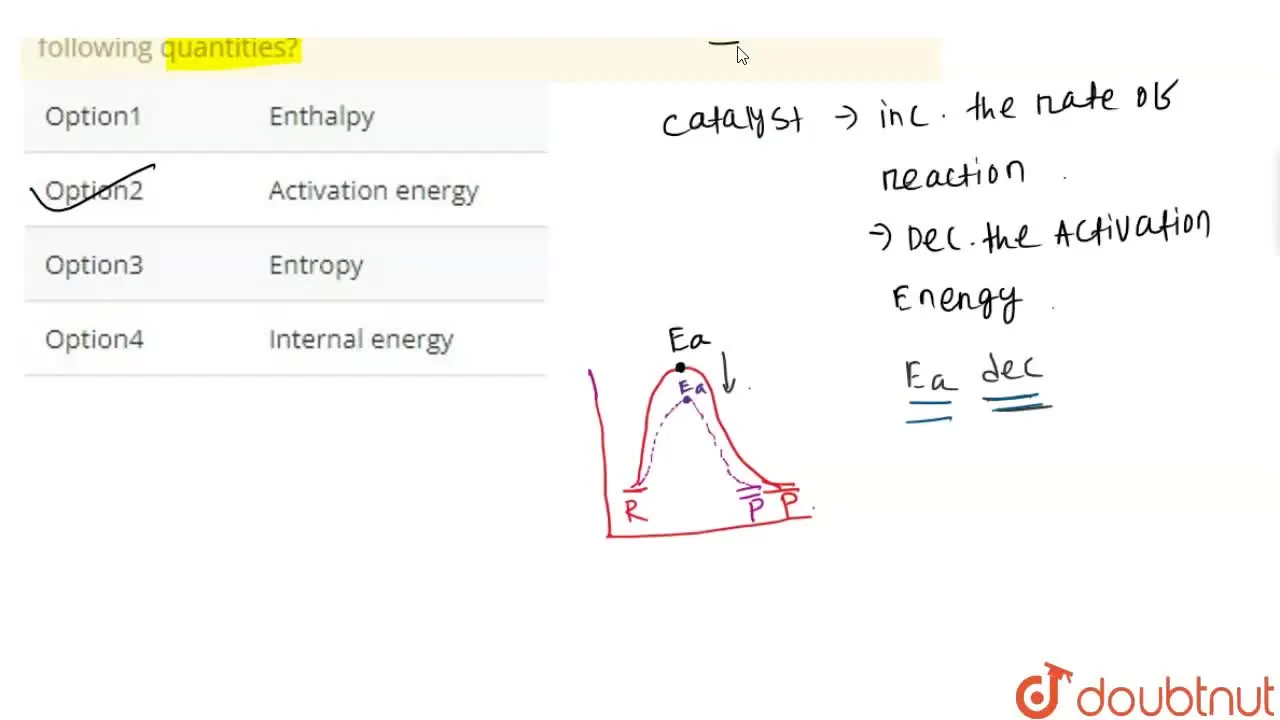 following quantities?
Option1 Enthalpy
Option2 Activation energy
Option3 Entropy
Option4 Internal energy
catalyst → inc. the rate of
reaction.
→ Dec. the Activation
Energy.
Ea dec
Ea
Ea
R P P
doubtnut